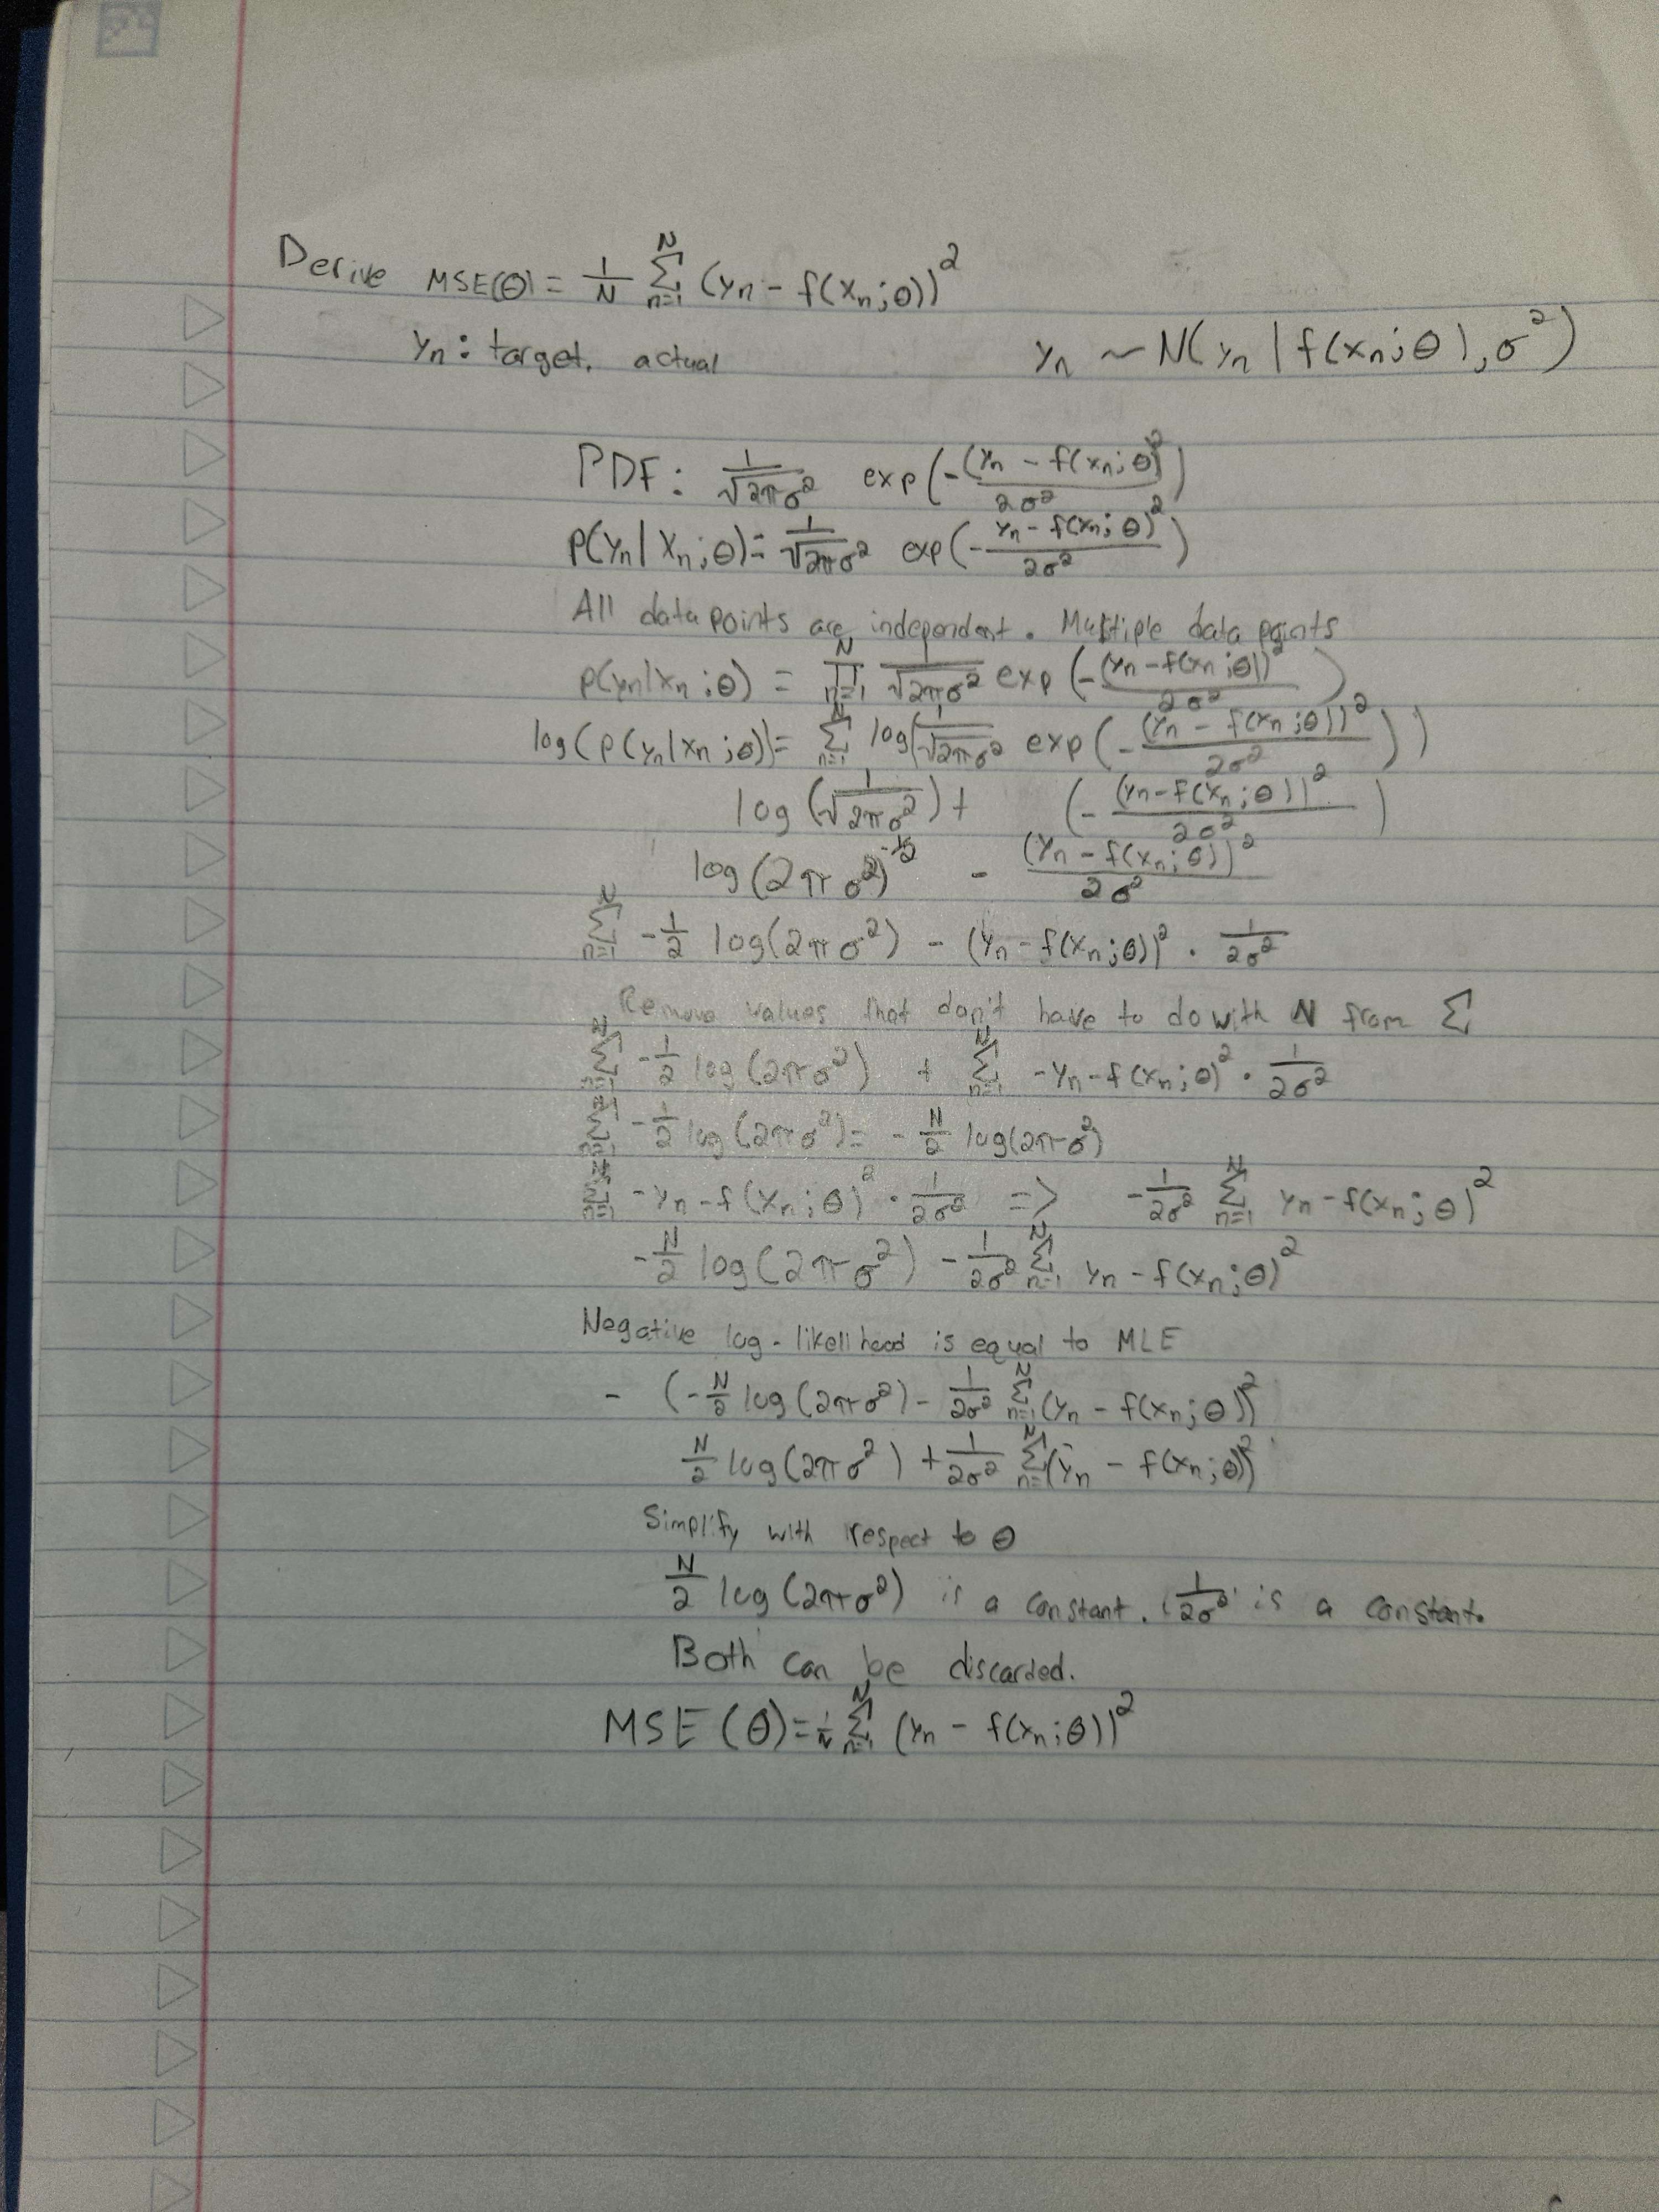 Derive MSE(θ) = 1/N Σ_{n=1}^{N} (yn - f(xn;θ))²
yn : target. actual yn ~ N(yn | f(xn;θ), σ²)
PDF: 1/√2πσ² exp(-(yn - f(xn;θ)²/2σ²)
p(yn | xn;θ) = 1/√2πσ² exp(- yn - f(xn;θ)²/2σ²)
All data points are independent. Multiple data points
p(yn|xn;θ) = Π_{n=1}^{N} 1/√2πσ² exp(-(yn - f(xn;θ))²/2σ²)
log(p(yn|xn;θ)) = Σ_{n=1}^{N} log(1/√2πσ² exp(-(yn - f(xn;θ))²/2σ²))
log(1/√2πσ²) + (-(yn - f(xn;θ))²/2σ²)
log(2πσ²)^-½ - (yn - f(xn;θ))²/2σ²
Σ_{n=1}^{N} -1/2 log(2πσ²) - (yn - f(xn;θ))² · 1/2σ²
Remove values that don't have to do with N from Σ
Σ_{n=1}^{N} -1/2 log(2πσ²) + Σ_{n=1}^{N} -yn - f(xn;θ)² · 1/2σ²
Σ_{n=1}^{N} -1/2 log(2πσ²) = -N/2 log(2πσ²)
Σ_{n=1}^{N} -yn - f(xn;θ)² · 1/2σ² => -1/2σ² Σ_{n=1}^{N} yn - f(xn;θ)²
-N/2 log(2πσ²) - 1/2σ² Σ_{n=1}^{N} yn - f(xn;θ)²
Negative log-likelihood is equal to MLE
- (-N/2 log(2πσ²) - 1/2σ² Σ_{n=1}^{N} (yn - f(xn;θ))²
N/2 log(2πσ²) + 1/2σ² Σ_{n=1}^{N} (yn - f(xn;θ))²
Simplify with respect to θ
N/2 log(2πσ²) is a constant. 1/2σ² is a constant.
Both can be discarded.
MSE(θ) = 1/N Σ_{n=1}^{N} (yn - f(xn;θ))²